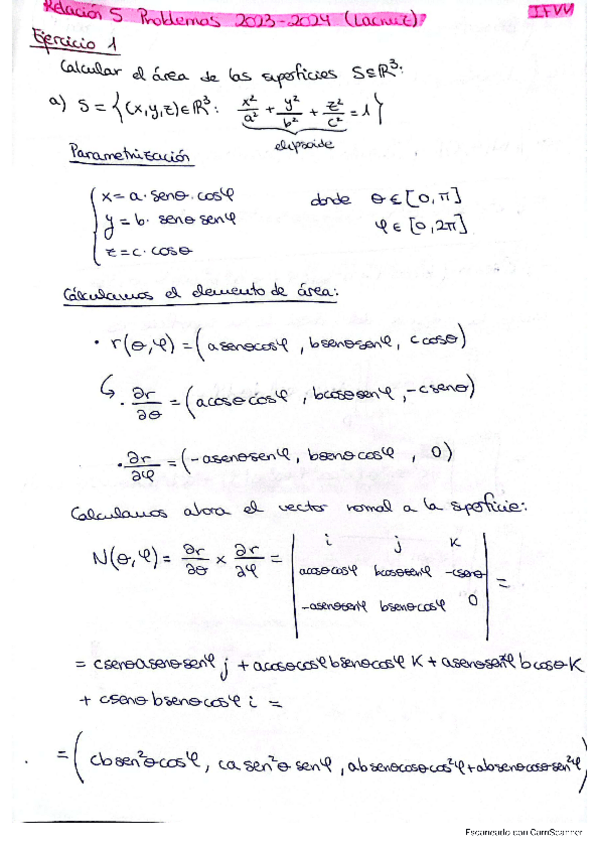 Relación 5 Problemas 2023-2024 (Lacruz):
IFVV
Ejercicio 1
Calcular el área de las superficies S⊆ℝ³:
a) S = { (x,y,z)∈ℝ³: x²/a² + y²/b² + z²/c² = 1 }
elipsoide
Parametrización
x = a·senθ·cosφ donde θ∈[0,π]
y = b·senθ senφ φ∈[0,2π]
z = c·cosθ
Cálculamos el elemento de área:
• r(θ,φ) = (a senθcosφ, b senθsenφ, c cosθ)
↳ · ∂r/∂θ = (acosθcosφ, bcosθsenφ, -csenθ)
· ∂r/∂φ = (-asenθsenφ, bsenθcosφ, 0)
Calculamos ahora el vector normal a la superficie:
i j k
N(θ,φ) = ∂r/∂θ × ∂r/∂φ = | acosθcosφ bcosθsenφ -csenθ | =
-asenθsenφ bsenθcosφ 0
= csenθasenθsenφ j + acosθcosφbsenθcosφ K + asenθsenφ bcosθ K
+ csenθ bsenθcosφ i =
= (cb sen²θ cosφ, ca sen²θ senφ, ab senθcosθcos²φ + absenθcosθsen²φ)
Escaneado con CamScanner